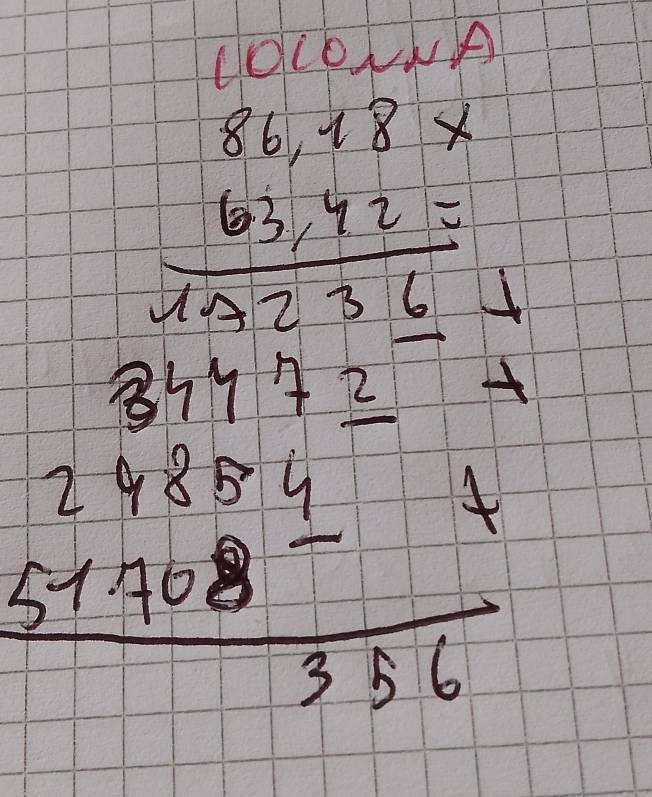 COLONNA
86,18 x
63,42 =
17236 +
34472 +
24854 +
51708
356